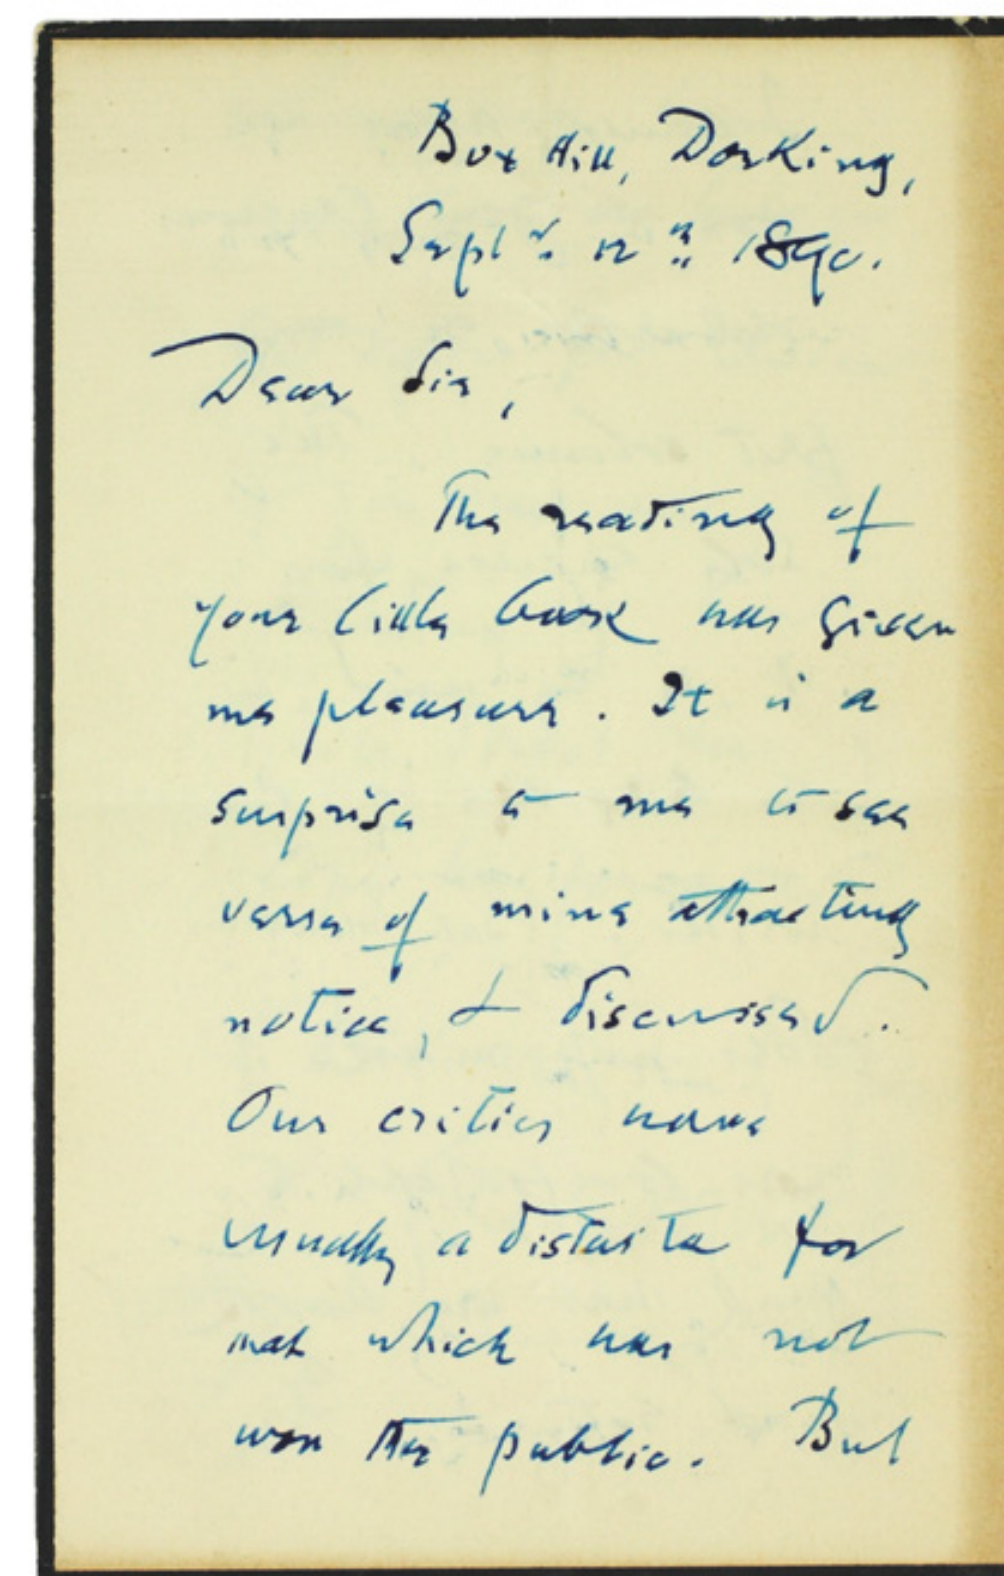 Box Hill, Dorking,
Septr. 12th 1890.
Dear Sir,
The reading of
your little book has given
me pleasure. It is a
surprise to me to see
verse of mine attracting
notice, & discussed.
Our critics have
usually a distaste for
that which has not
won the public. But